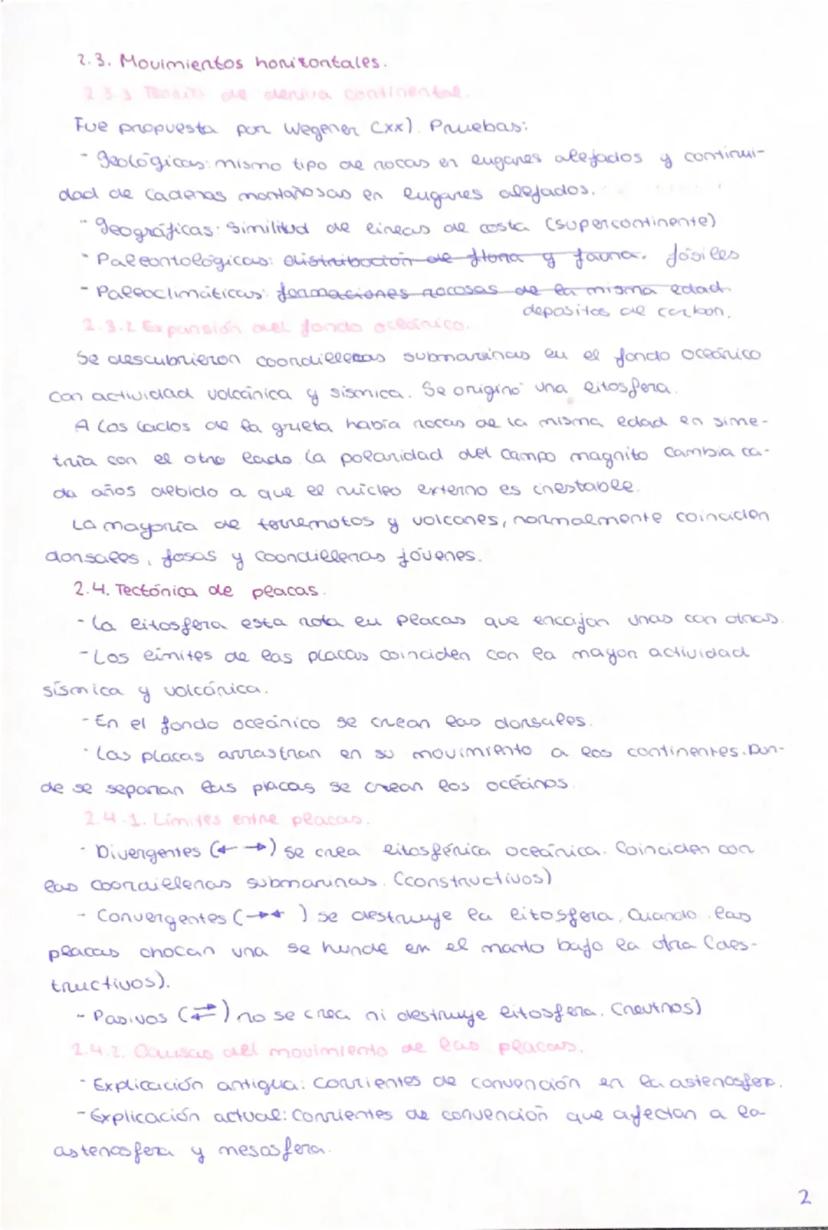 2.3. Movimientos horizontales.
2.3.1 Teoría de deriva continental.
Fue propuesta por Wegener (xx). Pruebas:
- Geológicas: mismo tipo de rocas en lugares alejados y continui-
dad de cadenas montañosas en lugares alejados.
- Geográficas: Similitud de lineas de costa (supercontinente)
- Paleontológicas: distribución de flora y fauna. fósiles
- Paleoclimáticas: formaciones rocosas de la misma edad.
depositos de carbon.
2.3.2 Expansión del fondo oceánico.
Se descubrieron coordilleras submarinas en el fondo oceánico
con actividad volcánica y sísmica. Se originó una litosfera.
A los lados de la grieta había rocas de la misma edad en sime-
tría con el otro lado la polaridad del campo magnito cambia ca-
da años debido a que el núcleo externo es inestable.
La mayoría de terremotos y volcanes, normalmente coinciden
dorsales, fosas y coordilleras jóvenes.
2.4. Tectónica de placas.
- La litosfera esta rota en placas que encajan unas con otras.
- Los límites de las placas coinciden con la mayor actividad
sísmica y volcánica.
- En el fondo oceánico se crean las dorsales.
- Las placas arrastran en su movimiento a los continentes. Don-
de se separan las placas se crean los océanos.
2.4.1. Límites entre placas.
- Divergentes (← →) se crea litosférica oceánica. Coinciden con
las coordilleras submarinas. (constructivos)
- Convergentes (→←) se destruye la litosfera. Cuando las
placas chocan una se hunde en el manto bajo la otra (des-
tructivos).
- Pasivos (⇄) no se crea ni destruye litosfera. (neutros)
2.4.2. Causas del movimiento de las placas.
- Explicación antigua: Corrientes de convención en la astenosfera.
- Explicación actual: Corrientes de convención que afectan a la
astenosfera y mesosfera.
2